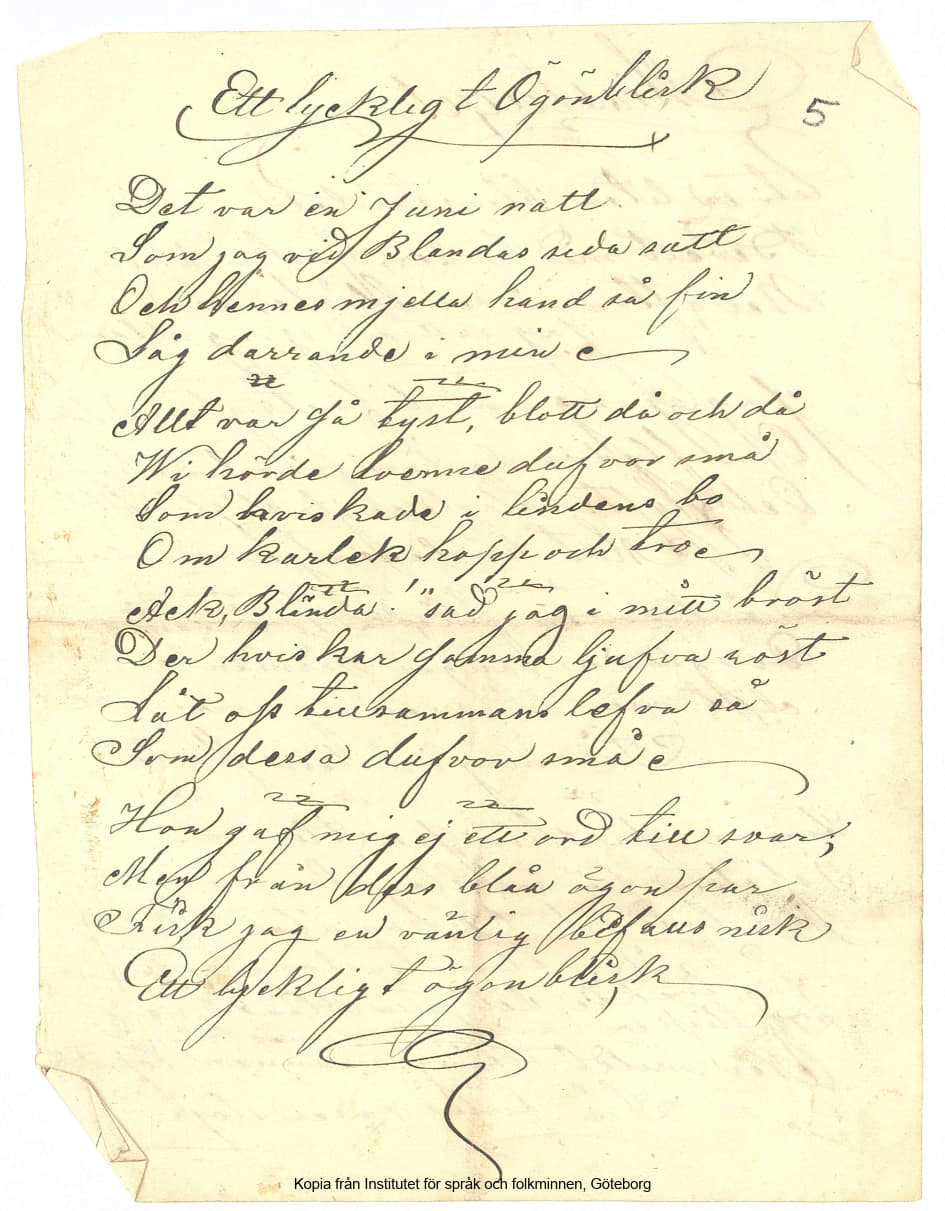 Ett lyckligt Ögönblick
5
Det var en Juni natt
Som jag vid Blandas sida satt
Och hennes mjella hand så fin
Låg darrande i min
Allt var så tyst, blott då och då
Wi hörde tvenne dufvor små
Som hviskade i lindens bo
Om karlek hopp och tro
Ack, Blinda! "sad jag i mitt bröst
Der hviskar samma ljufva röst
Låt oss tillsammans lefva så
Som dessa dufvor små
Hon gaf mig ej ett ord till svar;
Men från ders blåa ögon par
Fick jag en vänlig bifalls nick
Ett lyckligt ögonblick,
Kopia från Institutet för språk och folkminnen, Göteborg